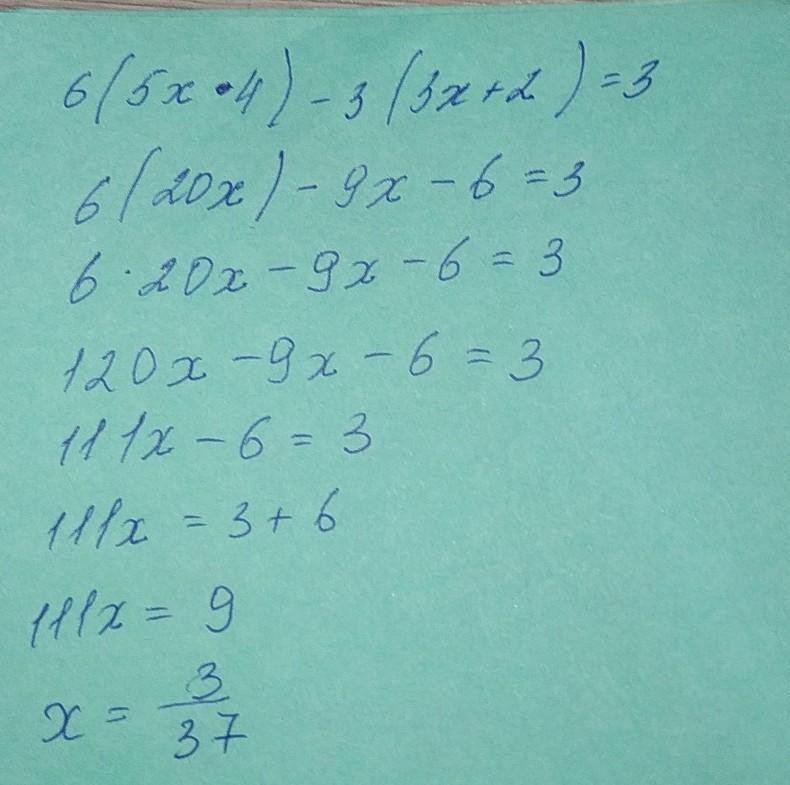 6(5x·4)-3(3x+2)=3
6(20x)-9x-6=3
6·20x-9x-6=3
120x-9x-6=3
111x-6=3
111x=3+6
111x=9
x=3/37